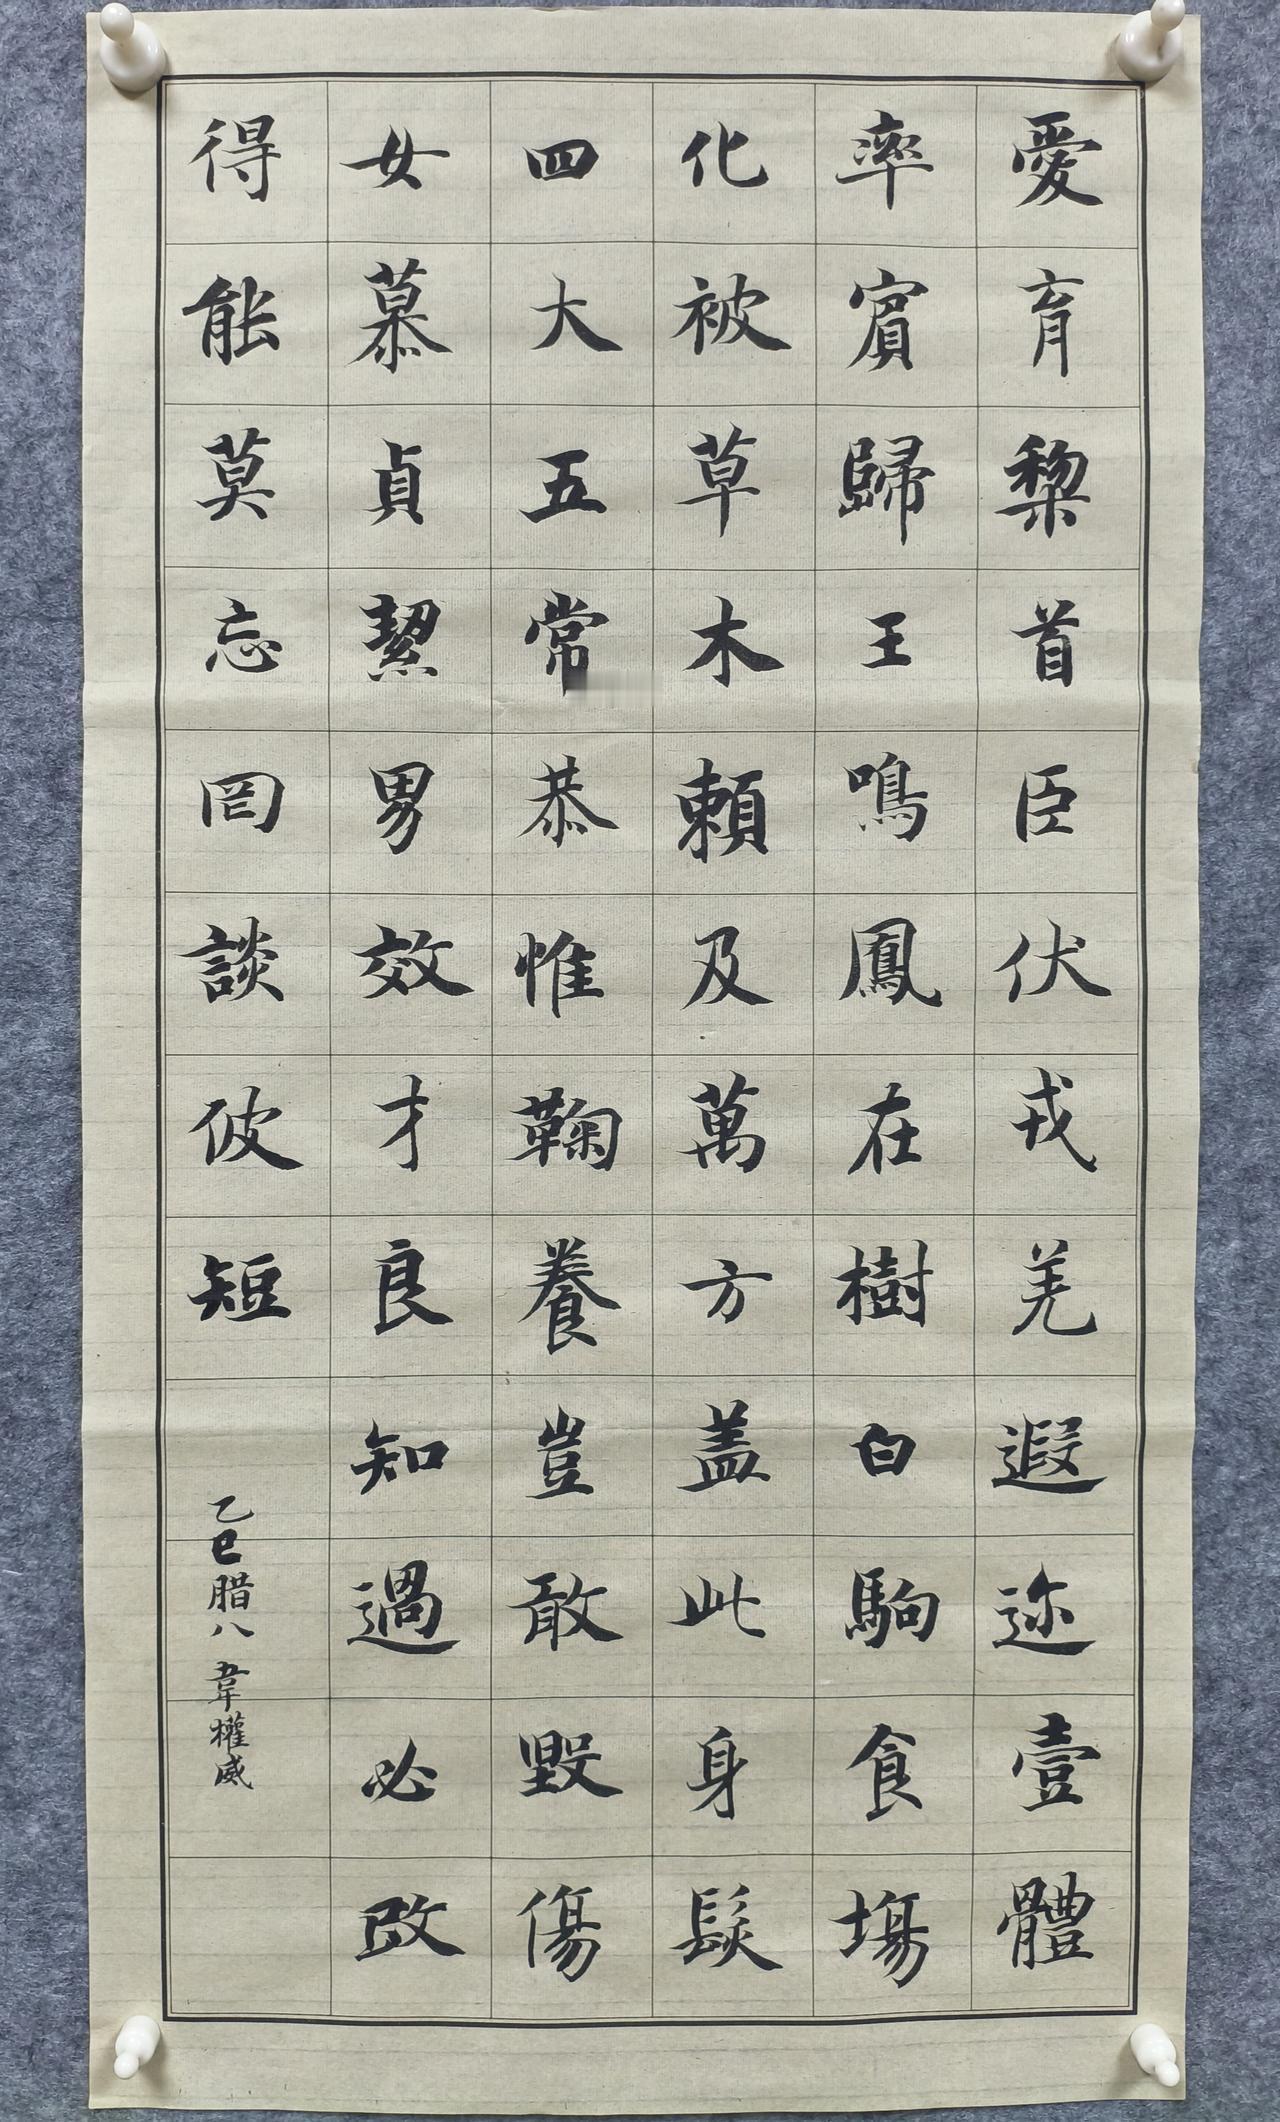 愛育黎首臣伏戎羌遐迩壹體
率賓歸王鳴鳳在樹白駒食場
化被草木賴及萬方盖此身髮
四大五常恭惟鞠養豈敢毀傷
女慕貞絜男效才良知過必改
得能莫忘罔談彼短
乙巳腊八 韋權威